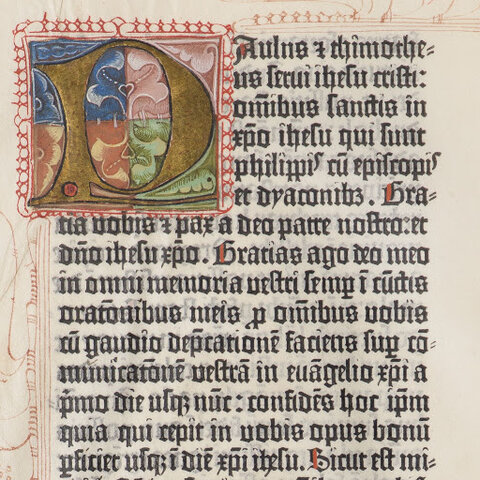 Paulus ⁊ thimothe-
us serui ihesu cristi:
om̄ibus sanctis in
xp̄o ihesu qui sunt
philippis cū episcopis
et dyaconibꝫ. Gra-
tia vobis ⁊ pax a deo patre nostro: et
dn̄o ihesu xp̄o. Gratias ago deo meo
in omni memoria vestri semꝑ ī cūctis
oratōnibus meis ꝓ om̄ibus vobis
cū gaudio dep̄catōnem faciens suꝑ cō-
municatōne vestrā in euāgelio xp̄i a
p̄mo die usqꝫ nūc: confidēs hoc ip̄m
quia qui cepit in vobis opus bonū
ꝑficiet usqꝫ ī diē xp̄i ihesu. Sicut est mi-